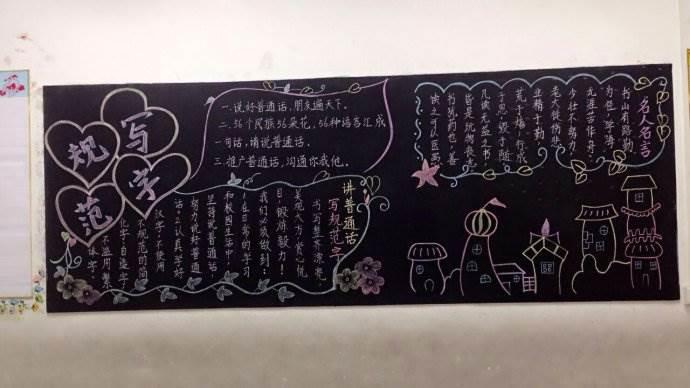 写字
规范
一.说好普通话,朋友遍天下。
二.56个民族56朵花,56种语言汇成
一句话,请说普通话。
三.推广普通话,沟通你我他。
讲普通话
写规范字
书写整齐漂亮,
美观大方,赏心悦
目,锻炼毅力!
我们必须做到:
1.在日常的学习
和校园生活中,
坚持说普通话,
努力说好普通
话。2.认真学好
汉字,不使用
不规范的简
化字、自造字,
不滥用繁
体字。
名人名言
书山有路勤
为径,学海
无涯苦作舟。
少壮不努力,
老大徒伤悲。
业精于勤
荒于嬉,行成
于思,毁于随。
凡读无益之书,
皆是玩物丧志。
书犹药也,善
读之可以医愚。